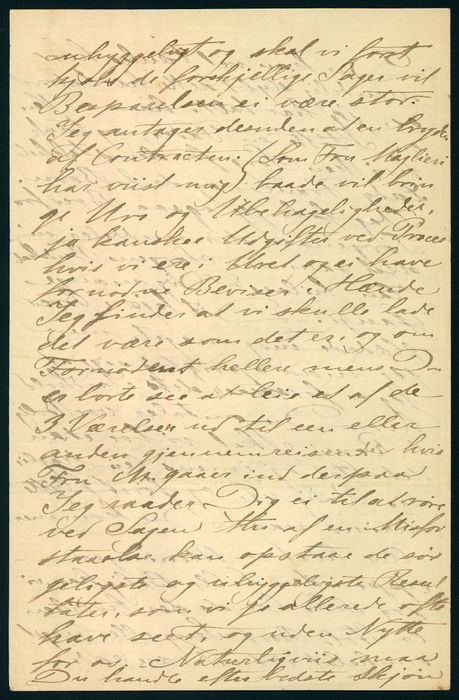 uhyggeligt og skal vi först
hjelpe de forskjellige Sager vil
Besparelsen ei være stor.
Jeg antager desuden at en bryden
af Contracten (som Fru Maglieri
har viist mig) baade vil brin
ge Uro og Ubehageligheder,
ja kanskee Udgifter ved Proces
hvis vi ere i Uret og ei have
fornödne Beviser i Hænde
Jeg finder at vi skulle lade
det være som det er, og om
Fornödent hellere mens Du
er borte see at leie et af de
3 Værelser ud til een eller
anden gjennemreisende hvis
Fru M. gaaer ind derpaa
Jeg raader Dig ei til at röre
ved Sagen thi af en Misfor
staaelse kan opstaae de sör
geligste og uhyggeligste Resul
tater, som vi jo allerede ofte
have seet, og uden Nytte
for os. Naturligviis maa
Du handle efter bedste Skjön